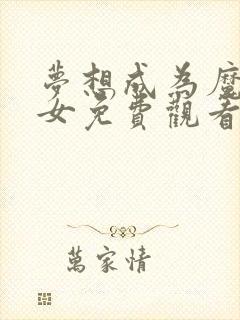 夢想成為魔
女免費觀看
萬家情